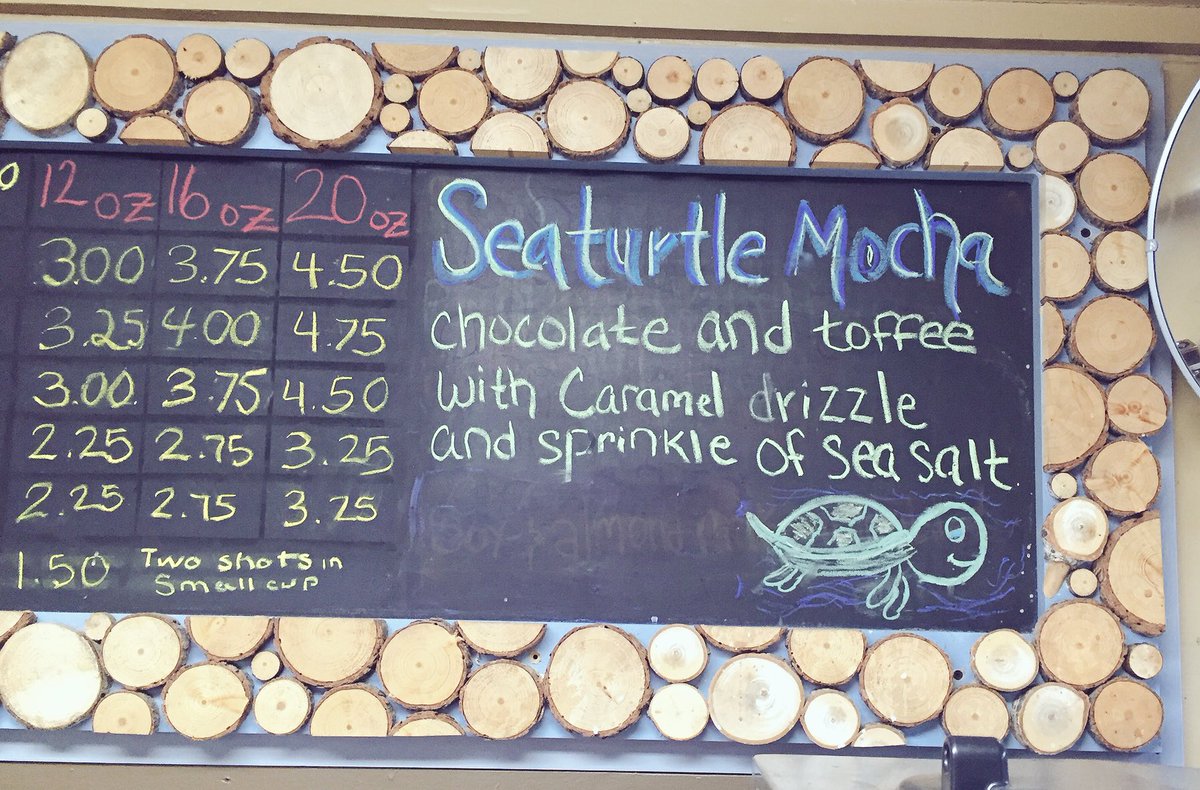 12 oz 16 oz 20 oz
3.00 3.75 4.50
3.25 4.00 4.75
3.00 3.75 4.50
2.25 2.75 3.25
2.25 2.75 3.25
1.50 Two shots in
Small cup
Seaturtle Mocha
chocolate and toffee
with Caramel drizzle
and sprinkle of sea salt